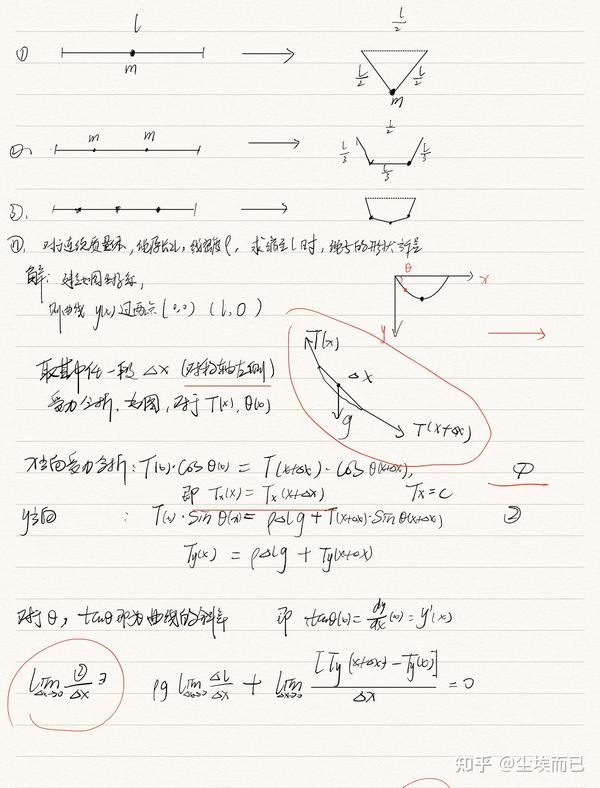 l
l/2
① m l/2 l/2 m
② m m l/2 l/3 l/3 l/3
③.
④. 对连续质量体,绳原长2l,线密度ρ,求缩至l时,绳子的形状
解:建如图坐标系,
则曲线 y(x) 过两点 (0,0) (l,0)
θ x
y
取其中任一段 Δx (对称轴左侧)
受力分析,如图,对于 T(x),θ(x)
T(x)
Δx
g
T(x+Δx)
x方向受力分析: T(x)·cosθ(x) = T(x+Δx)·cosθ(x+Δx), ①
即 Tx(x) = Tx(x+Δx) Tx = c
y方向 : T(x)·sinθ(x) = ρΔlg + T(x+Δx)·sinθ(x+Δx) ②
Ty(x) = ρΔlg + Ty(x+Δx)
对于θ, tanθ即为曲线的斜率 即 tanθ(x) = dy/dx(x) = y'(x)
lim Δx→0 ②/Δx ⇒ ρg lim Δx→0 Δl/Δx + lim Δx→0 [Ty(x+Δx) - Ty(x)]/Δx = 0
知乎 @尘埃而已